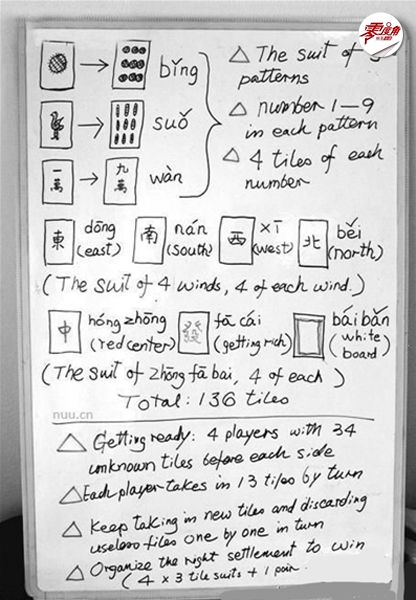 零度角
bǐng
suǒ
一萬 九萬 wàn
△ The suit of 3
patterns
△ number 1—9
in each pattern
△ 4 tiles of each
number
東 dōng (east) 南 nán (south) 西 xī (west) 北 běi (north)
(The suit of 4 winds, 4 of each wind.)
中 hóng zhōng (red center) 發 fā cái (getting rich) bái bǎn (white board)
(The suit of zhōng fā bái, 4 of each)
Total: 136 tiles
nuu.cn
△ Getting ready: 4 players with 34
unknown tiles before each side
△ Each player takes in 13 tiles by turn
△ Keep taking in new tiles and discarding
useless tiles one by one in turn
△ Organize the right settlement to win
(4 x 3 tile suits + 1 pair